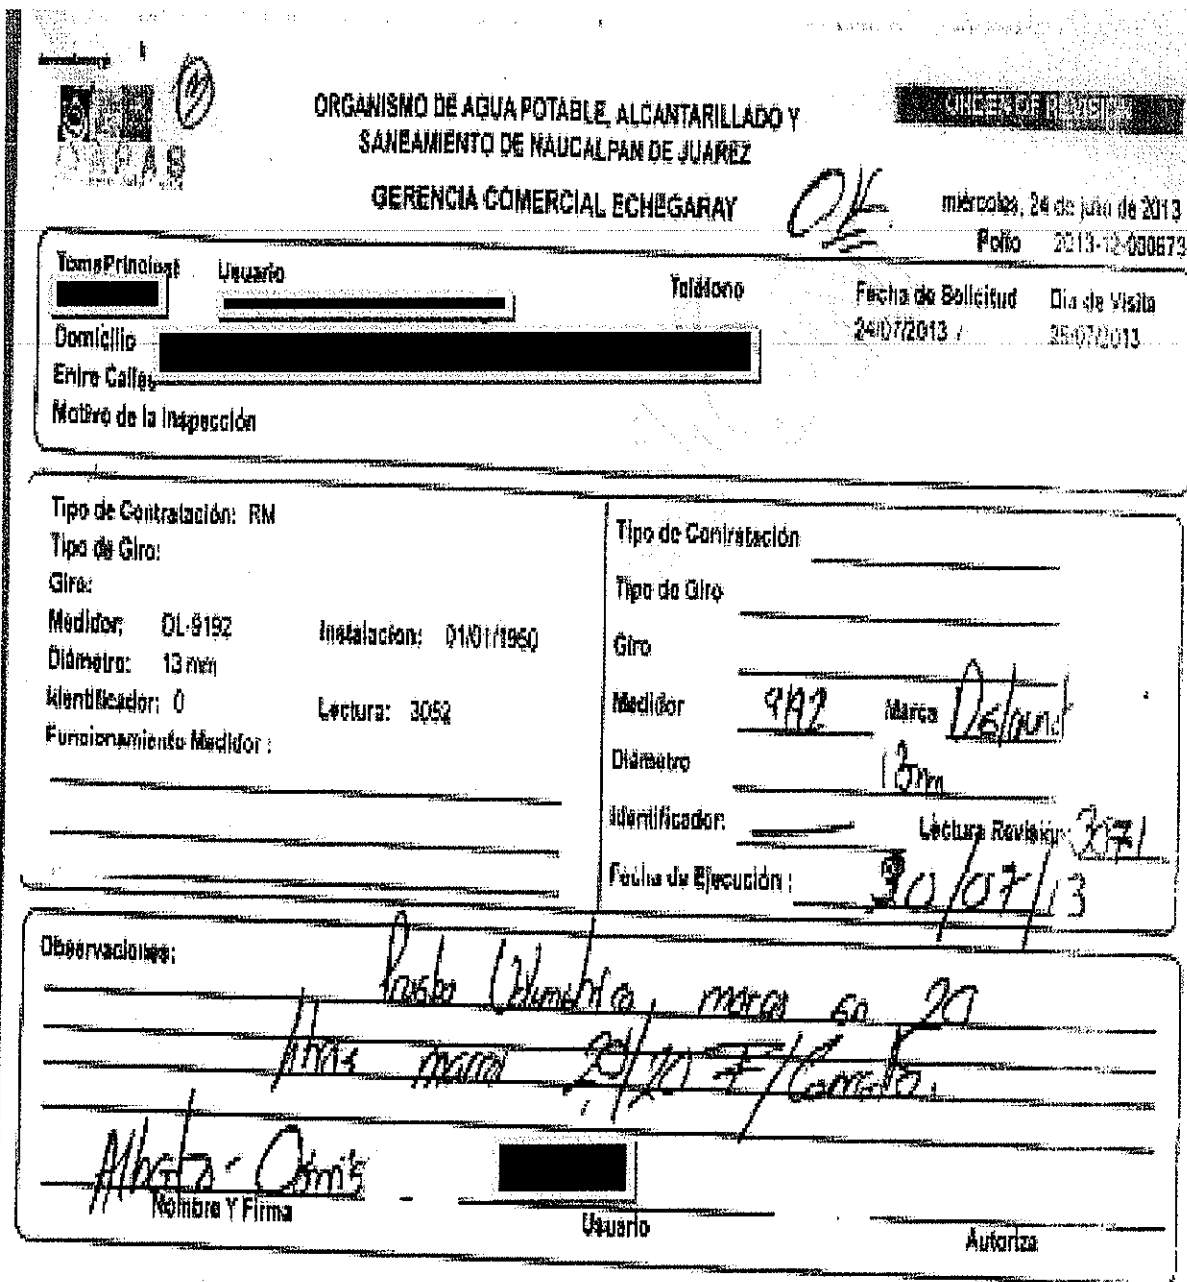 OAPAS
ORGANISMO DE AGUA POTABLE, ALCANTARILLADO Y
SANEAMIENTO DE NAUCALPAN DE JUAREZ
GERENCIA COMERCIAL ECHEGARAY
OK
miércoles, 24 de julio de 2013
Folio 2013-12-000673
TomaPrincipal Usuario Teléfono Fecha de Solicitud Dia de Visita
24/07/2013 / 25/07/2013
Domicilio
Entre Calles
Motivo de la Inspección
Tipo de Contratación: RM
Tipo de Giro:
Giro:
Medidor: DL-9192 Instalacion: 01/01/1950
Diámetro: 13 mm
Identificador: 0 Lectura: 3052
Funcionamiento Medidor :
Tipo de Contratación
Tipo de Giro
Giro
Medidor 9192 Marca
Diámetro 13mm
Identificador: Lectura Revisión:
Fecha de Ejecución : 30/07/13
Observaciones:
Prueba Volumetrica marca en 20
20/20
Alberto
Nombre Y Firma Usuario Autoriza